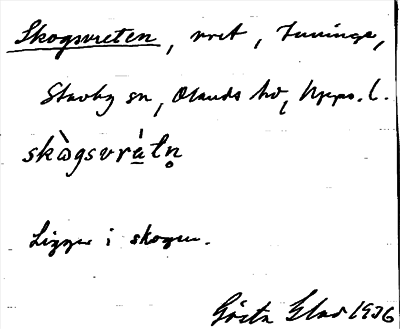 Skogsvreten, vret, Tuvinge,
Stavby sn, Olands hd, Upps. l.
skò̀gsvrà̱tn̥
Ligger i skogen.
Gösta Glad 1936